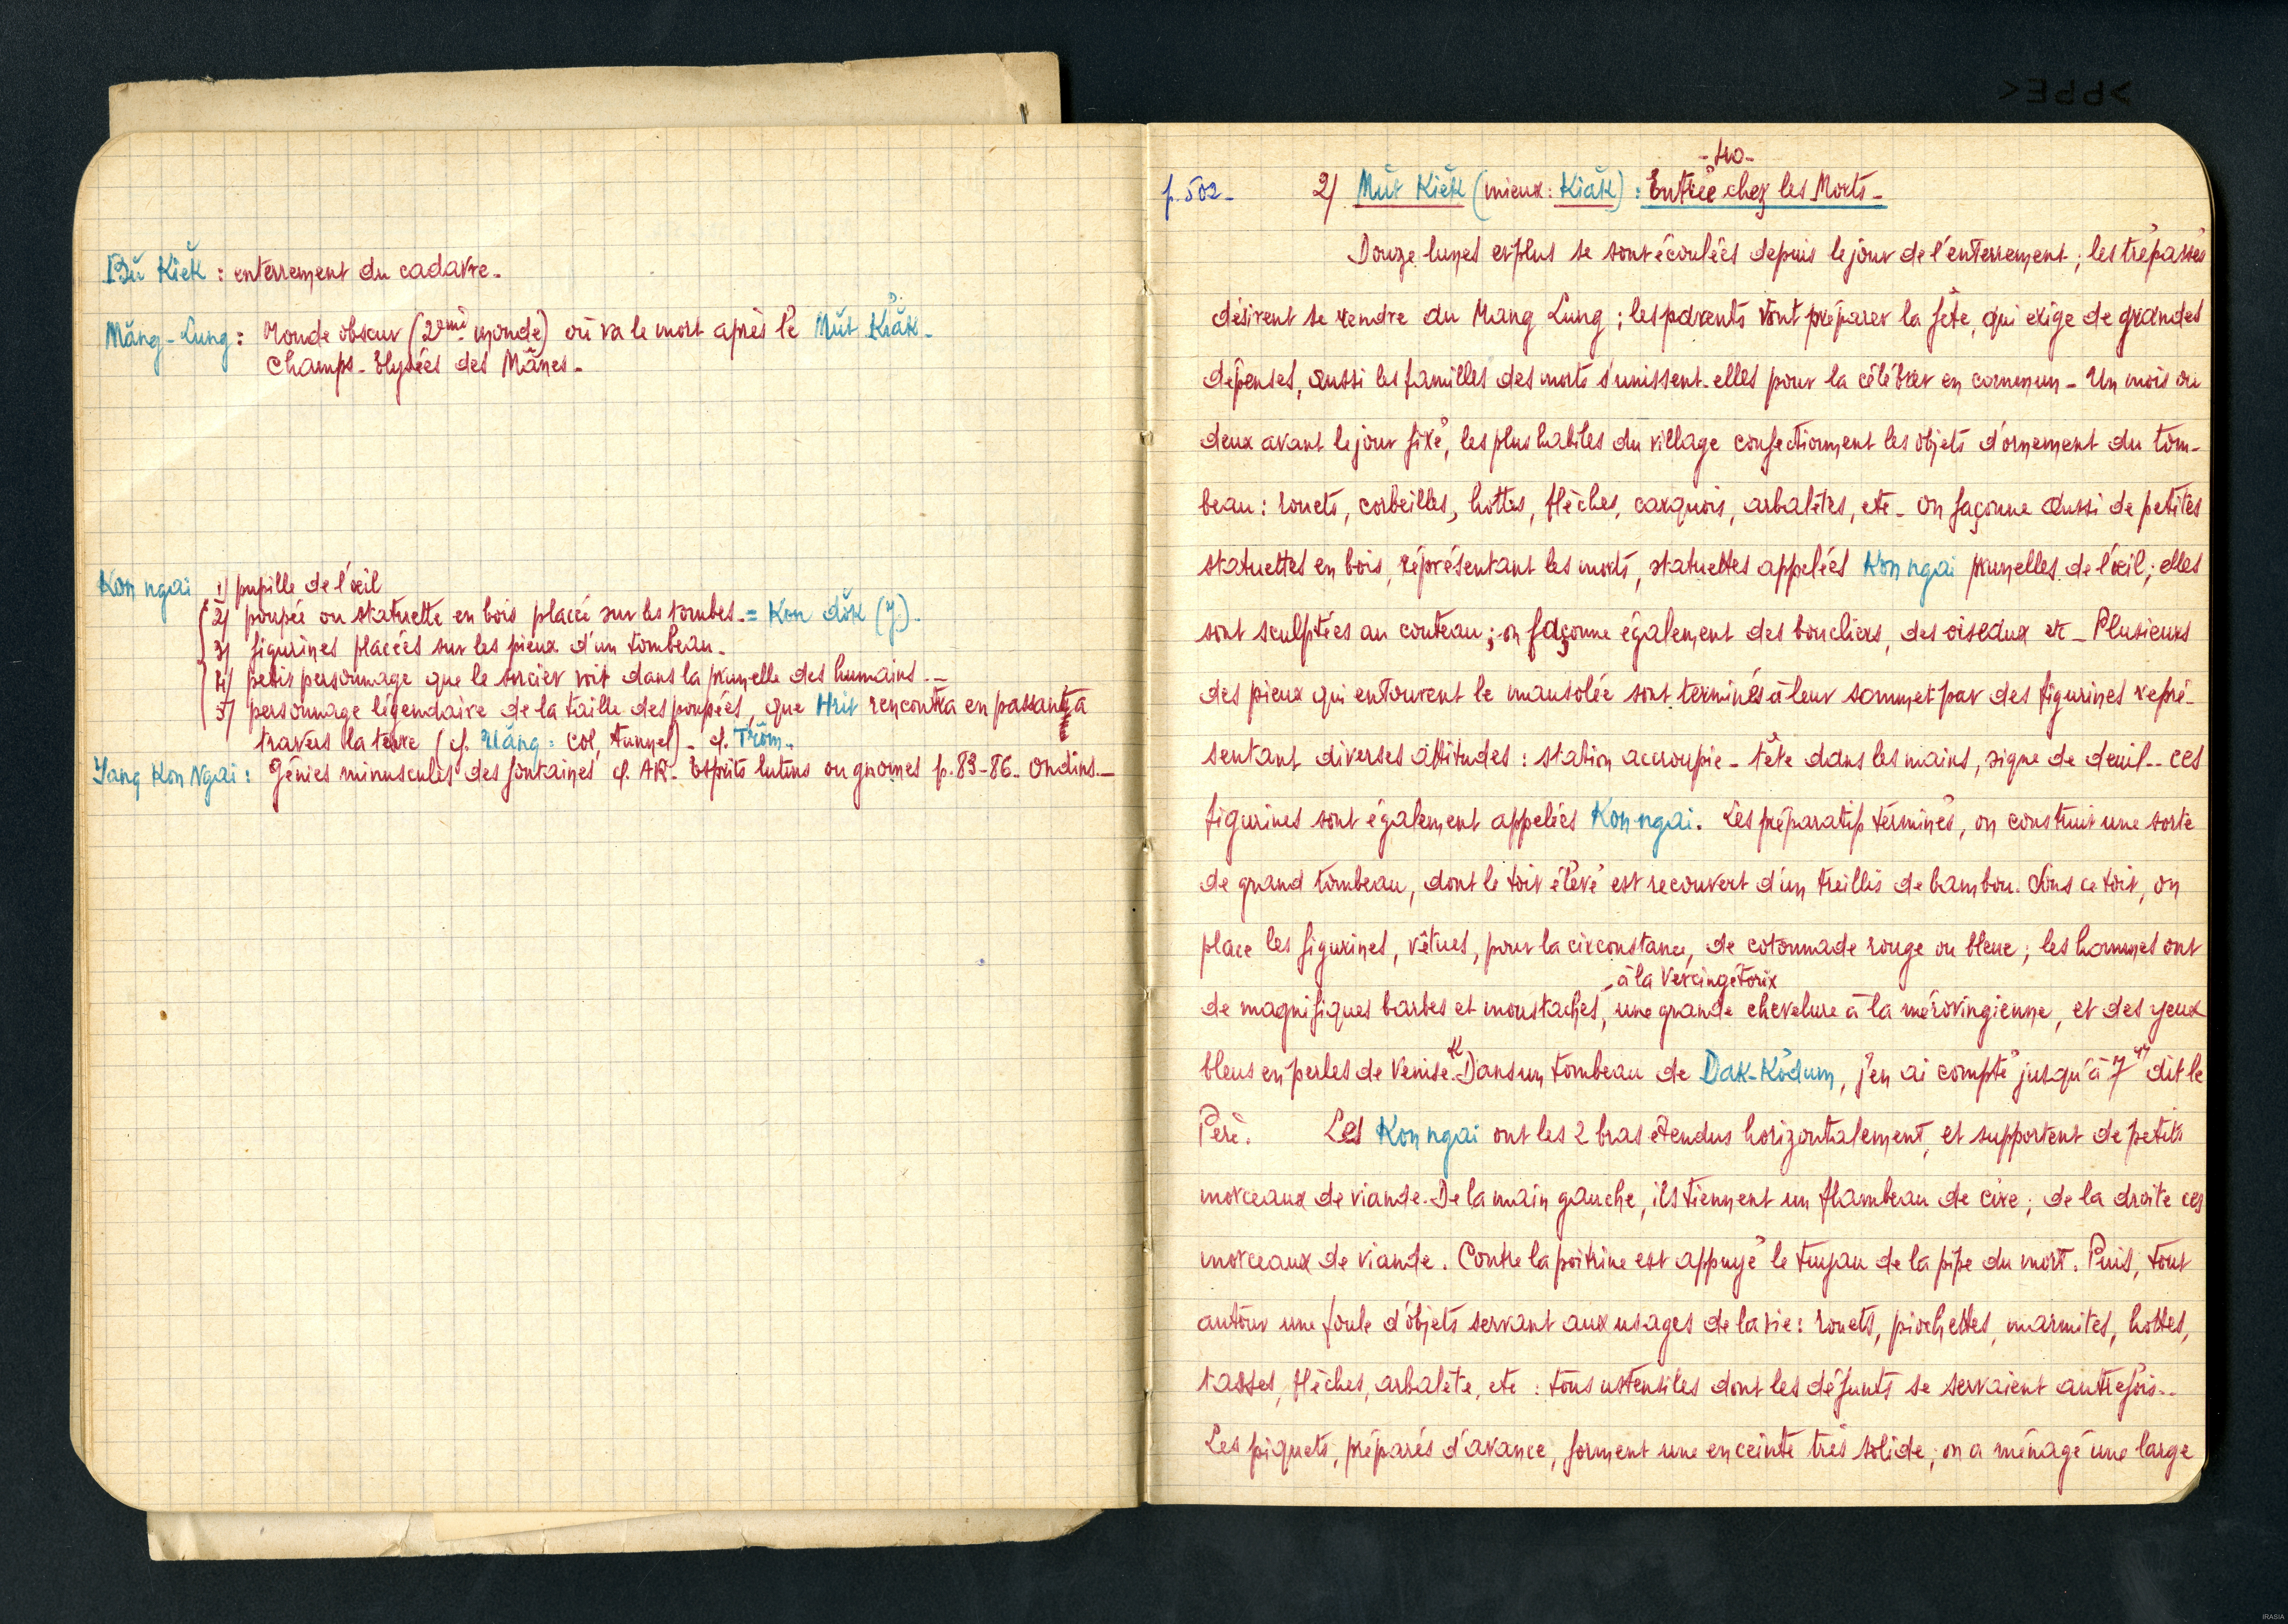 Bŭ Kiĕk : enterrement du cadavre.
Măng-Lung : Monde obscur (2ème monde) où va le mort après le Mŭt Kiăk.
Champs-Elysées des Mânes.
Kon ngai 1) pupille de l'œil
2) poupée ou statuette en bois placée sur les tombes. = Kon dŏk (J.).
3) figurines placées sur les pieux d'un tombeau.
4) petit personnage que le sorcier voit dans la prunelle des humains. _
5) personnage légendaire de la taille des poupées, que Hrit rencontra en passant à
travers la terre (cf. rlăng = col, tunnel). cf. Trŏm.
Yang Kon Ngai : Génies minuscules des fontaines cf. AR. Esprits lutins ou gnomes p. 83-86. Ondins. _
- 40 -
p. 502 - 2) Mŭt Kiĕk (mieux : Kiăk) : Entrée chez les Morts _
Douze lunes et plus se sont écoulées depuis le jour de l'enterrement ; les trépassés
désirent se rendre au Mang Lung ; les parents vont préparer la fête, qui exige de grandes
dépenses, aussi les familles des morts s'unissent-elles pour la célébrer en commun _ Un mois ou
deux avant le jour fixé, les plus habiles du village confectionnent les objets d'ornement du tom-
beau : rouets, corbeilles, hottes, flèches, carquois, arbalètes, etc _ On façonne aussi de petites
statuettes en bois, réprésentant les morts, statuettes appelées Kon ngai prunelles de l'œil ; elles
sont sculptées au couteau ; on façonne également des boucliers, des oiseaux etc _ Plusieurs
des pieux qui entourent le mausolée sont terminés à leur sommet par des figurines repré-
sentant diverses attitudes : station accroupie _ tête dans les mains, signe de deuil _ Ces
figurines sont également appelées Kon-ngai. Les préparatifs terminés, on construit une sorte
de grand tombeau, dont le toit élevé est recouvert d'un treillis de bambou. Sous ce toit, on
place les figurines, vêtues, pour la circonstance, de cotonnade rouge ou bleue ; les hommes ont
à la Vercingétorix
de magnifiques barbes et moustaches, une grande chevelure à la mérovingienne, et des yeux
bleus en perles de Venise. "Dans un tombeau de Dak-Kŏdum, j'en ai compté jusqu'à 7" dit le
Père. Les Kon ngai ont les 2 bras étendus horizontalement, et supportent de petits
morceaux de viande. De la main gauche, ils tiennent un flambeau de cire ; de la droite ces
morceaux de viande. Contre la poitrine est appuyé le tuyau de la pipe du mort. Puis, tout
autour une foule d'objets servant aux usages de la vie : rouets, piochettes, marmites, hottes,
tasses, flèches, arbalète, etc : tous ustensiles dont les défunts se servaient autrefois _
Les piquets, préparés d'avance, forment une enceinte très solide ; on a ménagé une large
>PPE<
IRASIA